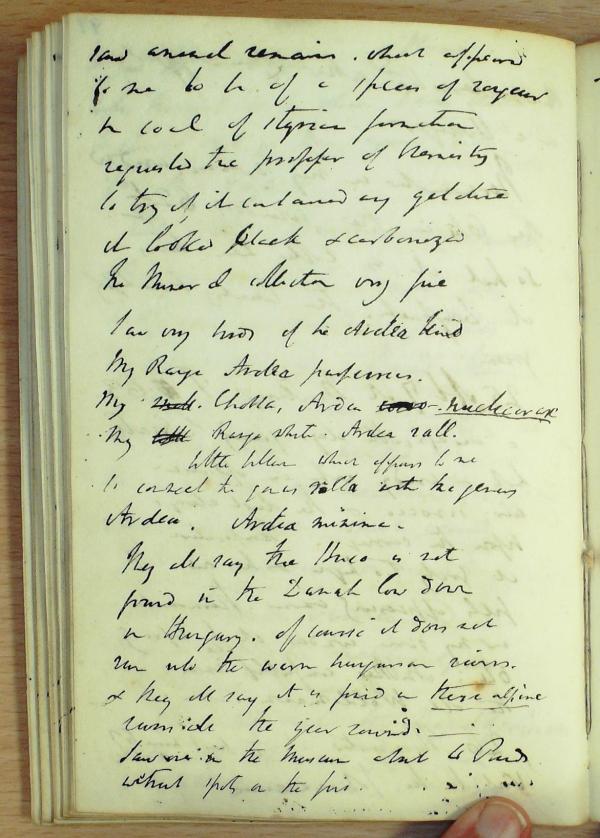 saw animal remains. what appeared
to me to be of a species of
in coal of Styrian formation
requested the professor of Chemistry
to try if it contained any gelatine
it looked black & carbonized
The Mineral collection very fine
I saw very birds of the Ardea kind
My Ardea purpurea.
My Ardea
My white. Ardea rall.
little which appears to me
to connect the genus rolla with the genus
Ardea. Ardea minima.
They all say the Huco is not
found in the low down
in Hungary. Of course it does not
run into the warm hungarian rivers.
& they all say it is found in these alpine
the year round.
Saw one in the Museum about
without spots on the fins.